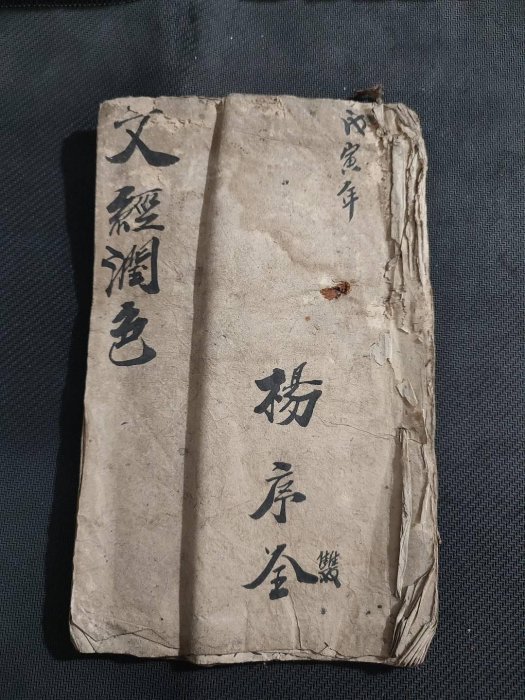 戊寅年
楊序全
雙
文經潤色